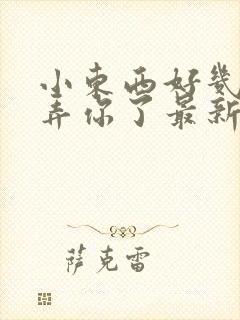 小东西好几
弄你了最新
萨克雷